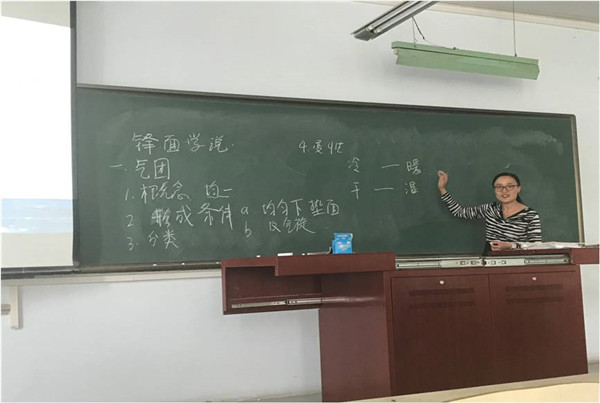 锋面学说.
一. 气团
1. 概念 均一
2 形成条件 a 均匀下垫面
b 仅停
3. 分类
4. 变性
冷 — 暖
干 — 湿